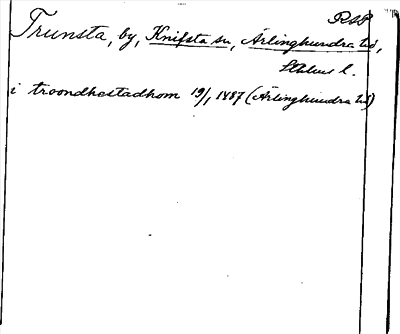 RSP
Trunsta, by, Knifsta sn, Ärlinghundra hd,
Sthlms l.
i troondhestadhom 19/1 1487 (Ärlinghundra hd)